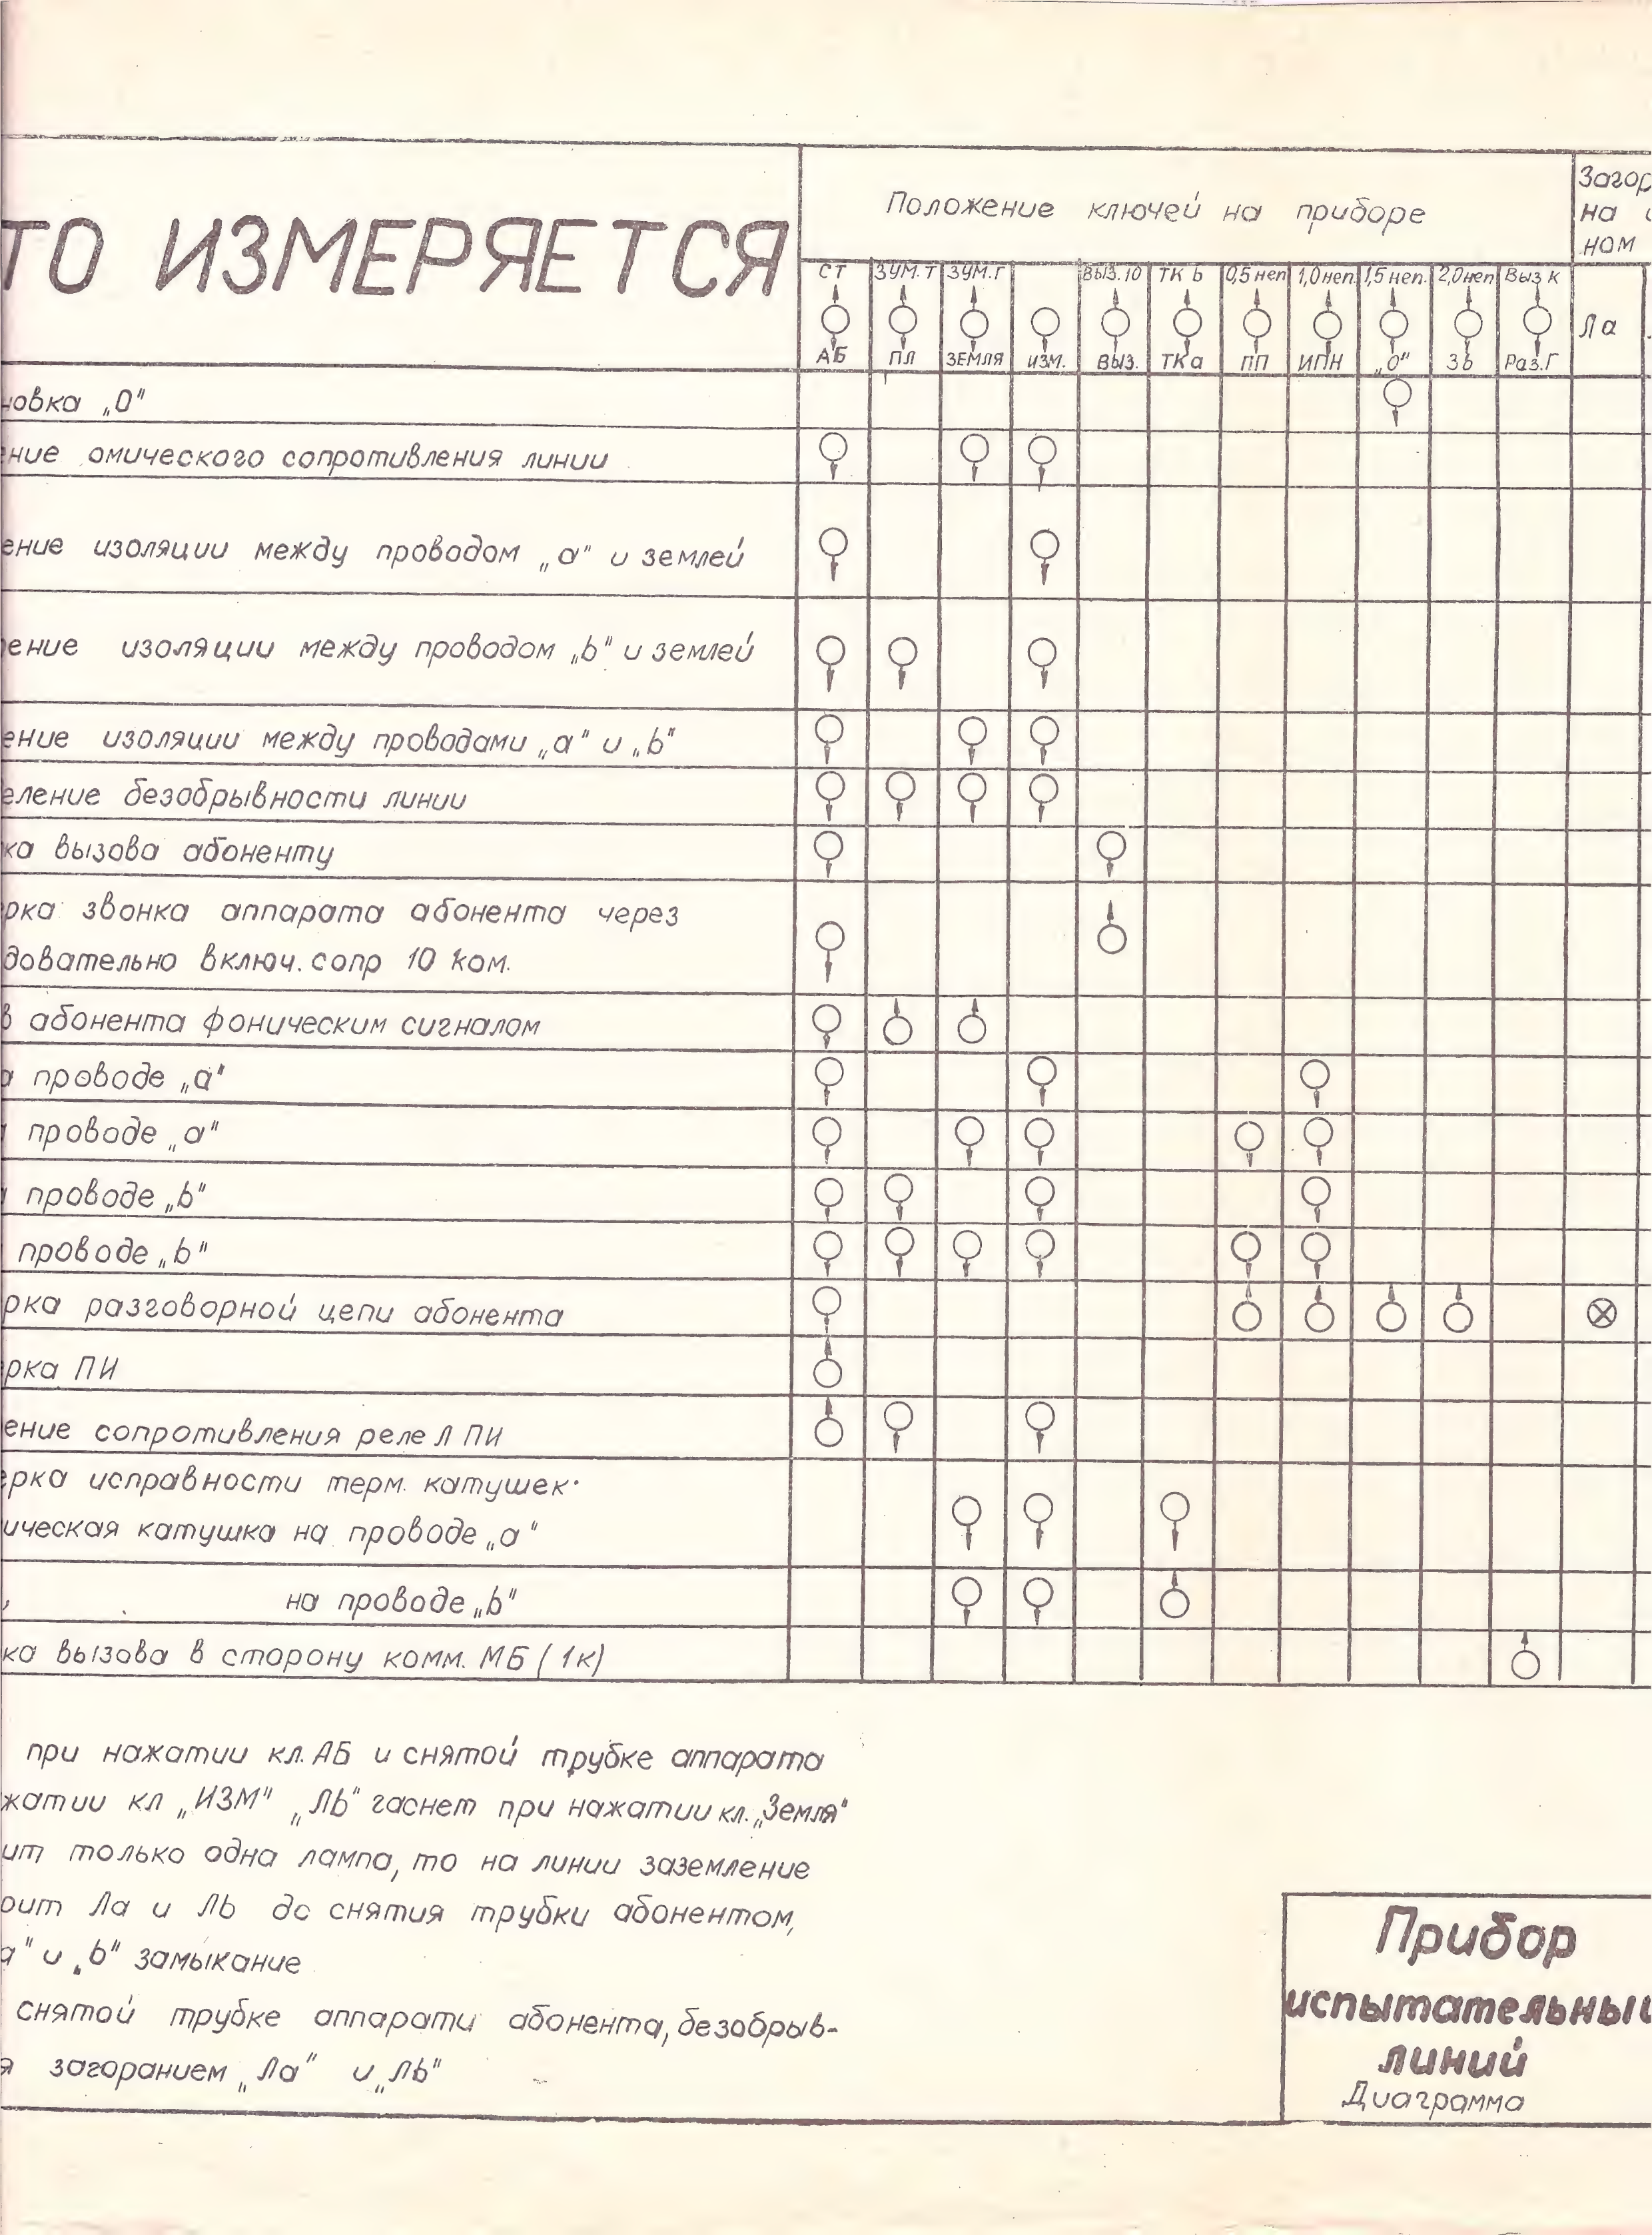 ТО ИЗМЕРЯЕТСЯ
Положение ключей на приборе
Загор
на
ном
СТ ЗУМ.Т ЗУМ.Г ВЫЗ.10 ТК b 0,5 неп 1,0 неп. 1,5 неп. 2,0 неп Выз К
Ла
АБ ПЛ ЗЕМЛЯ ИЗМ. ВЫЗ. ТКа ПП ИПН „0" Зb Раз.Г
новка „0"
ение омического сопротивления линии
ение изоляции между проводом „а" и землей
рение изоляции между проводом „b" и землей
ение изоляции между проводами „а" и „b"
еление безобрывности линии
ка вызова абоненту
рка звонка аппарата абонента через
довательно включ. сопр 10 ком.
в абонента фоническим сигналом
а проводе „а"
проводе „а"
проводе „b"
проводе „b"
рка разговорной цепи абонента
рка ПИ
ение сопротивления реле Л ПИ
ерка исправности терм. катушек.
ическая катушка на проводе „а"
на проводе „b"
ка вызова в сторону комм. МБ (1к)
при нажатии кл. АБ и снятой трубке аппарата
жатии кл „ИЗМ" „Лb" гаснет при нажатии кл. „Земля"
ит только одна лампа, то на линии заземление
рит Ла и Лb до снятия трубки абонентом,
а" и „b" замыкание
снятой трубке аппарати абонента, безобрыв-
я загоранием „Ла" и „Лb"
Прибор
испытательный
линий
Диаграмма